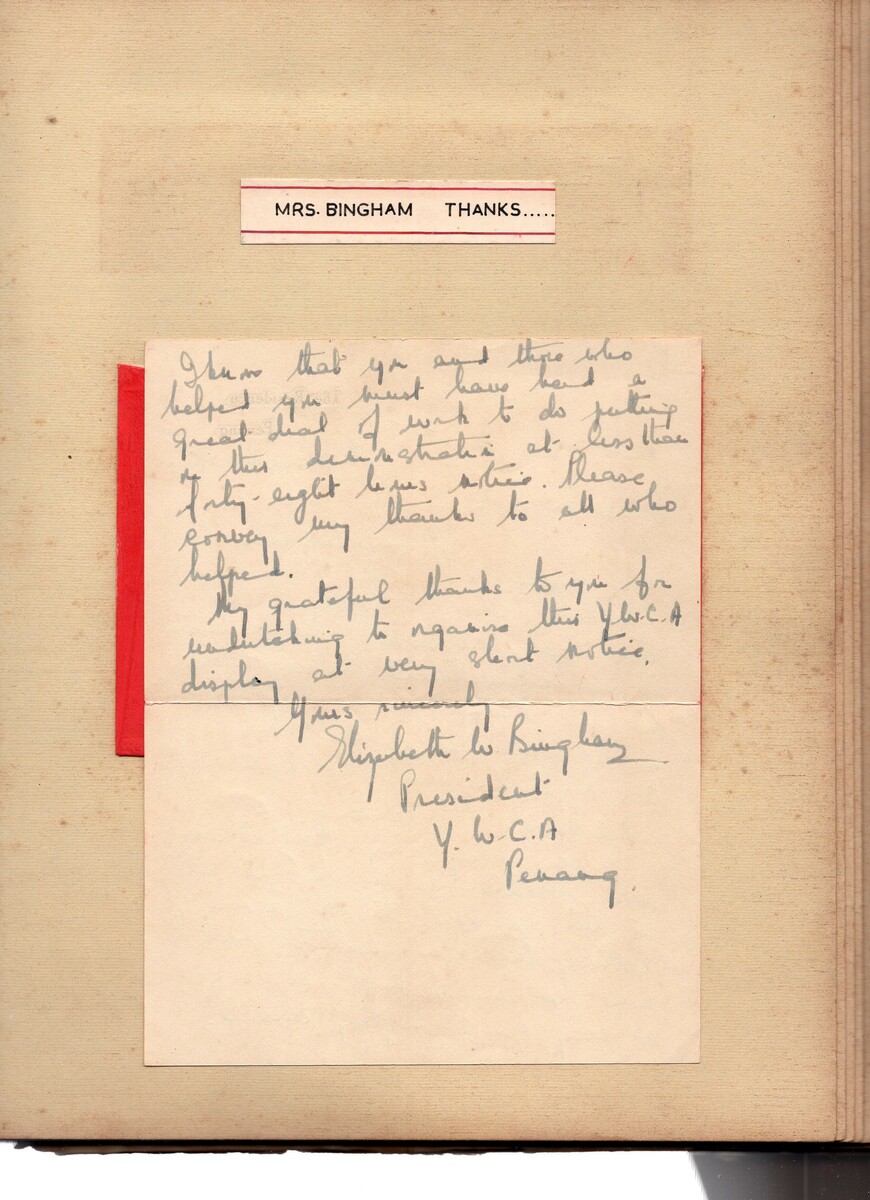 MRS. BINGHAM THANKS.....
I know that you and those who
helped you must have had a
great deal of work to do putting
on this demonstration at less than
forty-eight hours notice. Please
convey my thanks to all who
helped.
My grateful thanks to you for
undertaking to organise this Y.W.C.A
display at very short notice.
Yours sincerely
Elizabeth W Bingham
President
Y.W.C.A
Penang.